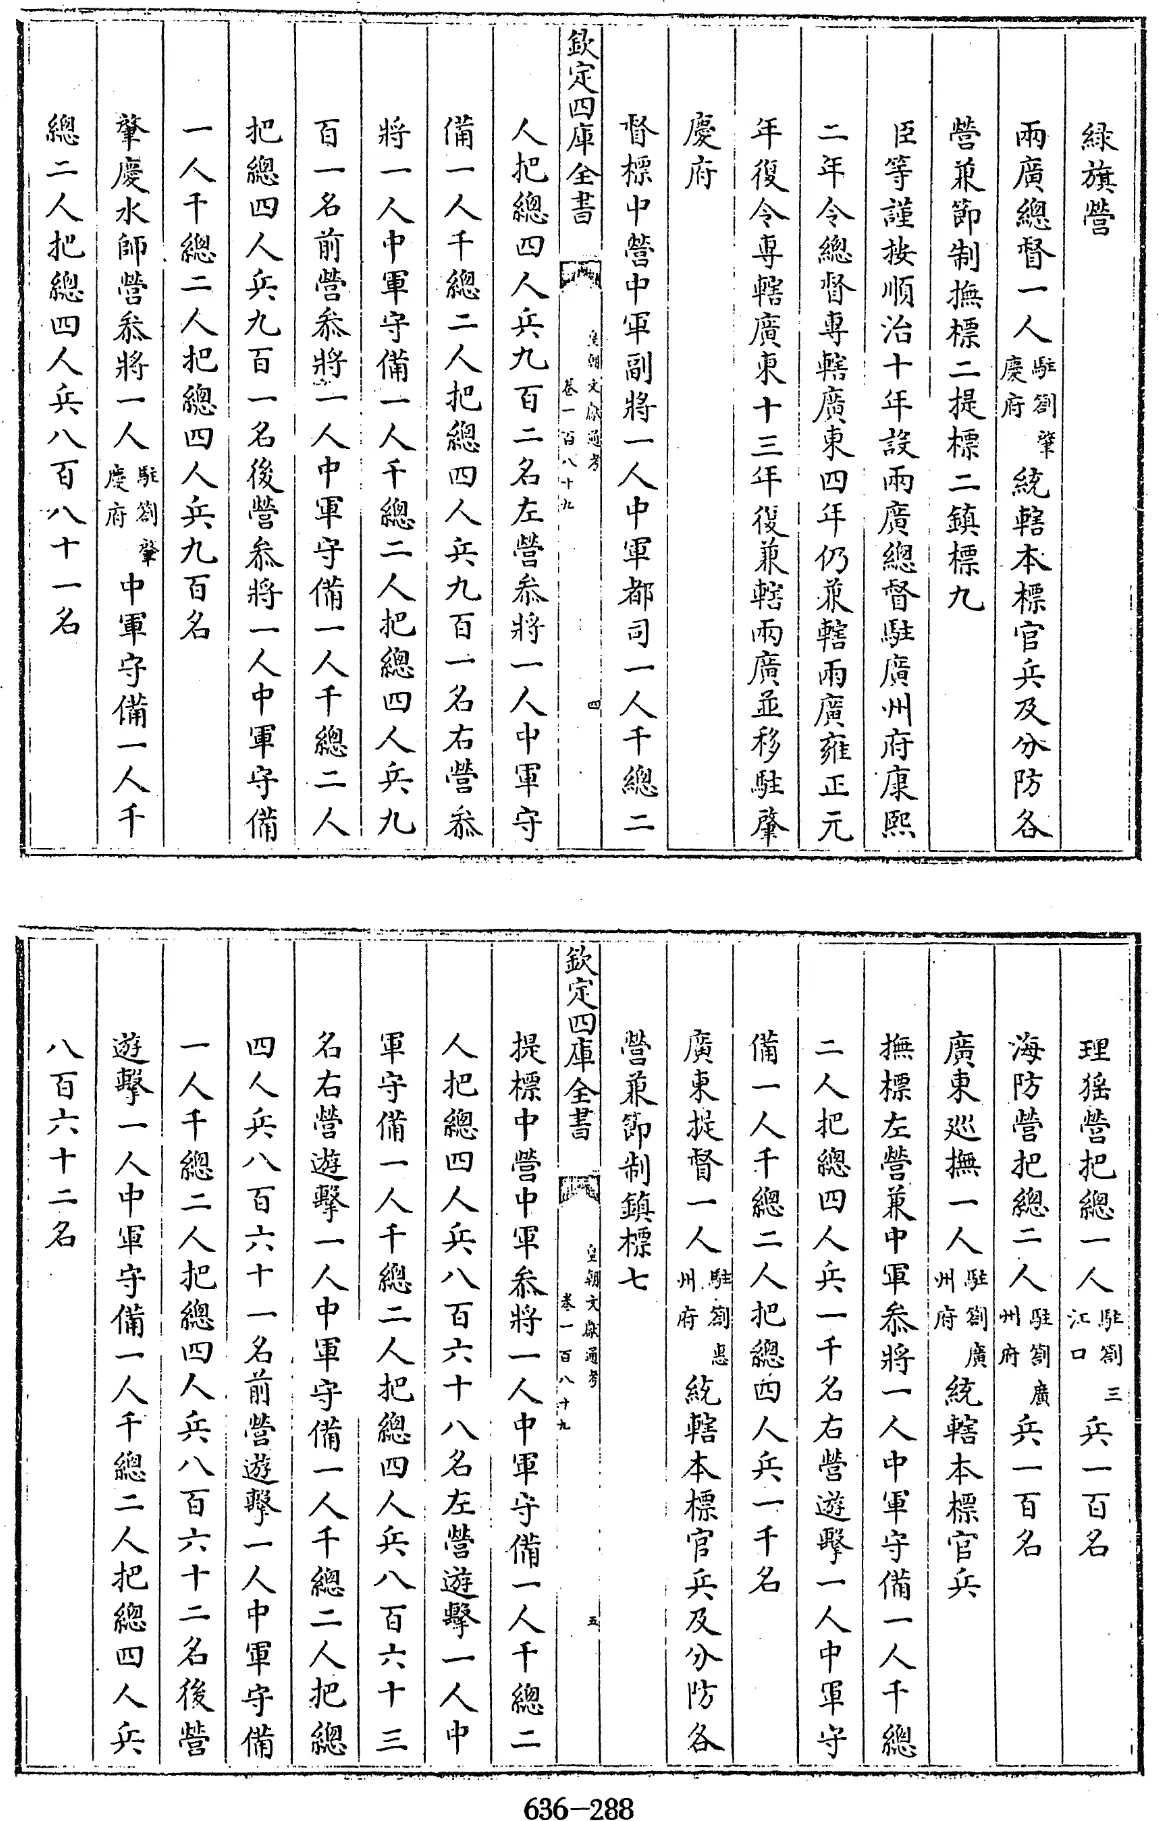 綠旗營
兩廣總督一人駐劄肇慶府統轄本標官兵及分防各
營兼節制撫標二提標二鎮標九
臣等謹按順治十年設兩廣總督駐廣州府康熙
二年令總督專轄廣東四年仍兼轄兩廣雍正元
年復令專轄廣東十三年復兼轄兩廣並移駐肇
慶府
督標中營中軍副將一人中軍都司一人千總二
欽定四庫全書
皇朝文獻通考
卷一百八十九
四
人把總四人兵九百二名左營叅將一人中軍守
備一人千總二人把總四人兵九百一名右營叅
將一人中軍守備一人千總二人把總四人兵九
百一名前營叅將一人中軍守備一人千總二人
把總四人兵九百一名後營叅將一人中軍守備
一人千總二人把總四人兵九百名
肇慶水師營叅將一人駐劄肇慶府中軍守備一人千
總二人把總四人兵八百八十一名
理猺營把總一人駐劄三江口兵一百名
海防營把總二人駐劄廣州府兵一百名
廣東巡撫一人駐劄廣州府統轄本標官兵
撫標左營兼中軍叅將一人中軍守備一人千總
二人把總四人兵一千名右營遊擊一人中軍守
備一人千總二人把總四人兵一千名
廣東提督一人駐劄惠州府統轄本標官兵及分防各
營兼節制鎮標七
欽定四庫全書
皇朝文獻通考
卷一百八十九
五
提標中營中軍叅將一人中軍守備一人千總二
人把總四人兵八百六十八名左營遊擊一人中
軍守備一人千總二人把總四人兵八百六十三
名右營遊擊一人中軍守備一人千總二人把總
四人兵八百六十一名前營遊擊一人中軍守備
一人千總二人把總四人兵八百六十二名後營
遊擊一人中軍守備一人千總二人把總四人兵
八百六十二名
636-288